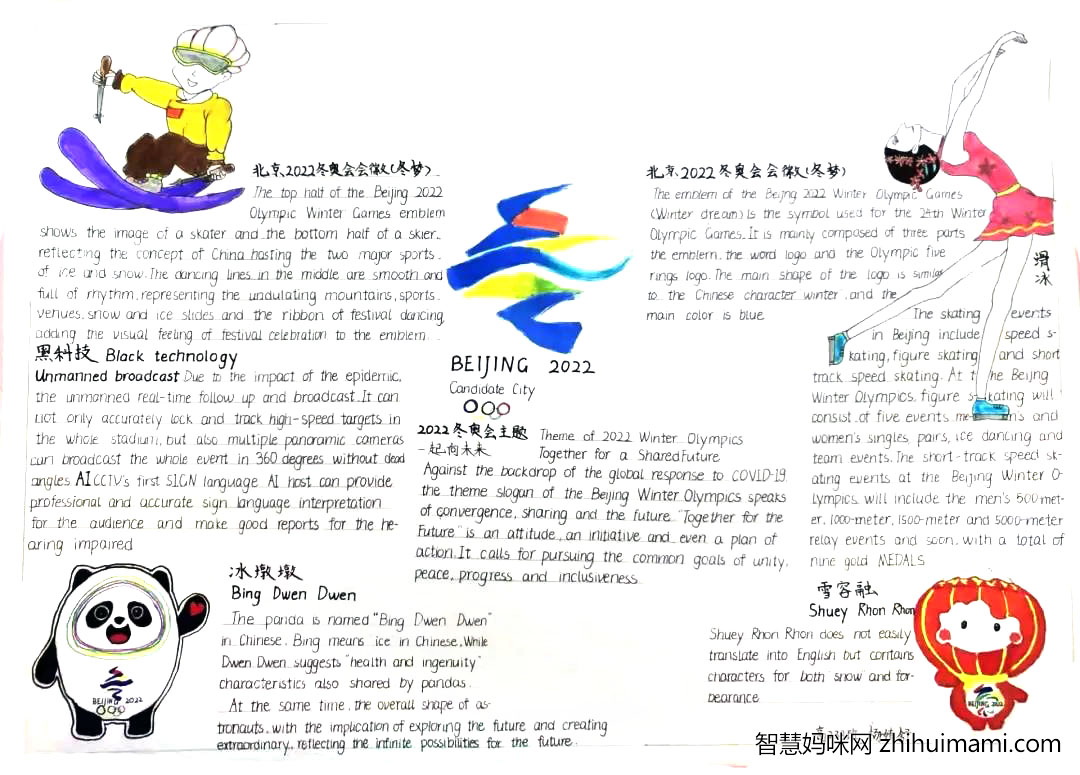 北京2022冬奥会会徽(冬梦)
The top half of the Beijing 2022
Olympic Winter Games emblem
shows the image of a skater and the bottom half of a skier.
reflecting the concept of China hosting the two major sports
of ice and snow. The dancing lines in the middle are smooth and
full of rhythm, representing the undulating mountains, sports
venues, snow and ice slides and the ribbon of festival dancing,
adding the visual feeling of festival celebration to the emblem.
黑科技 Black technology
Unmanned broadcast Due to the impact of the epidemic,
the unmanned real-time follow up and broadcast. It can
not only accurately lock and track high-speed targets in
the whole stadium, but also multiple panoramic cameras
can broadcast the whole event in 360 degrees without dead
angles AI CCTV's first SIGN language AI host can provide
professional and accurate sign language interpretation
for the audience and make good reports for the he-
aring impaired
BEIJING 2022
Candidate City
2022冬奥会主题
一起向未来
Theme of 2022 Winter Olympics
Together for a Shared Future
Against the backdrop of the global response to COVID-19.
the theme slogan of the Beijing Winter Olympics speaks
of convergence, sharing and the future. "Together for the
Future" is an attitude, an initiative and even a plan of
action. It calls for pursuing the common goals of unity,
peace, progress and inclusiveness
北京2022冬奥会会徽(冬梦)
The emblem of the Beijng 2022 Winter Olympic Games
(Winter dream) Is the symbol used for the 24th Winter
Olympic Games. It is mainly composed of three parts
the emblem, the word logo and the Olympic five
rings logo. The main shape of the logo is similar
to the Chinese character winter, and the
main color is blue
滑冰
The skating events
in Beijing include speed s-
kating, figure skating and short
track speed skating. At the Beijng
Winter Olympics, figure s-kating will
consist of five events me-ns and
women's singles, pairs, ice dancing and
team events. The short-track speed sk-
ating events at the Beijing Winter O-
lympics will include the men's 500 met-
er, 1000-meter, 1500-meter and 5000-meter
relay events and soon, with a total of
nine gold MEDALS
冰墩墩
Bing Dwen Dwen
The panda is named "Bing Dwen Dwen"
in Chinese. Bing means ice in Chinese. While
Dwen Dwen suggests "health and ingenuity"
characteristics also shared by pandas.
At the same time, the overall shape of as-
tronauts, with the implication of exploring the future and creating
extraordinary, reflecting the infinite possibilities for the future.
BEIJING 2022
雪容融
Shuey Rhon Rhon
Shuey Rhon Rhon does not easily
translate into English but contains
characters for both snow and for-
bearance
BEIJING 2022
智慧妈咪网 zhihuimami.com